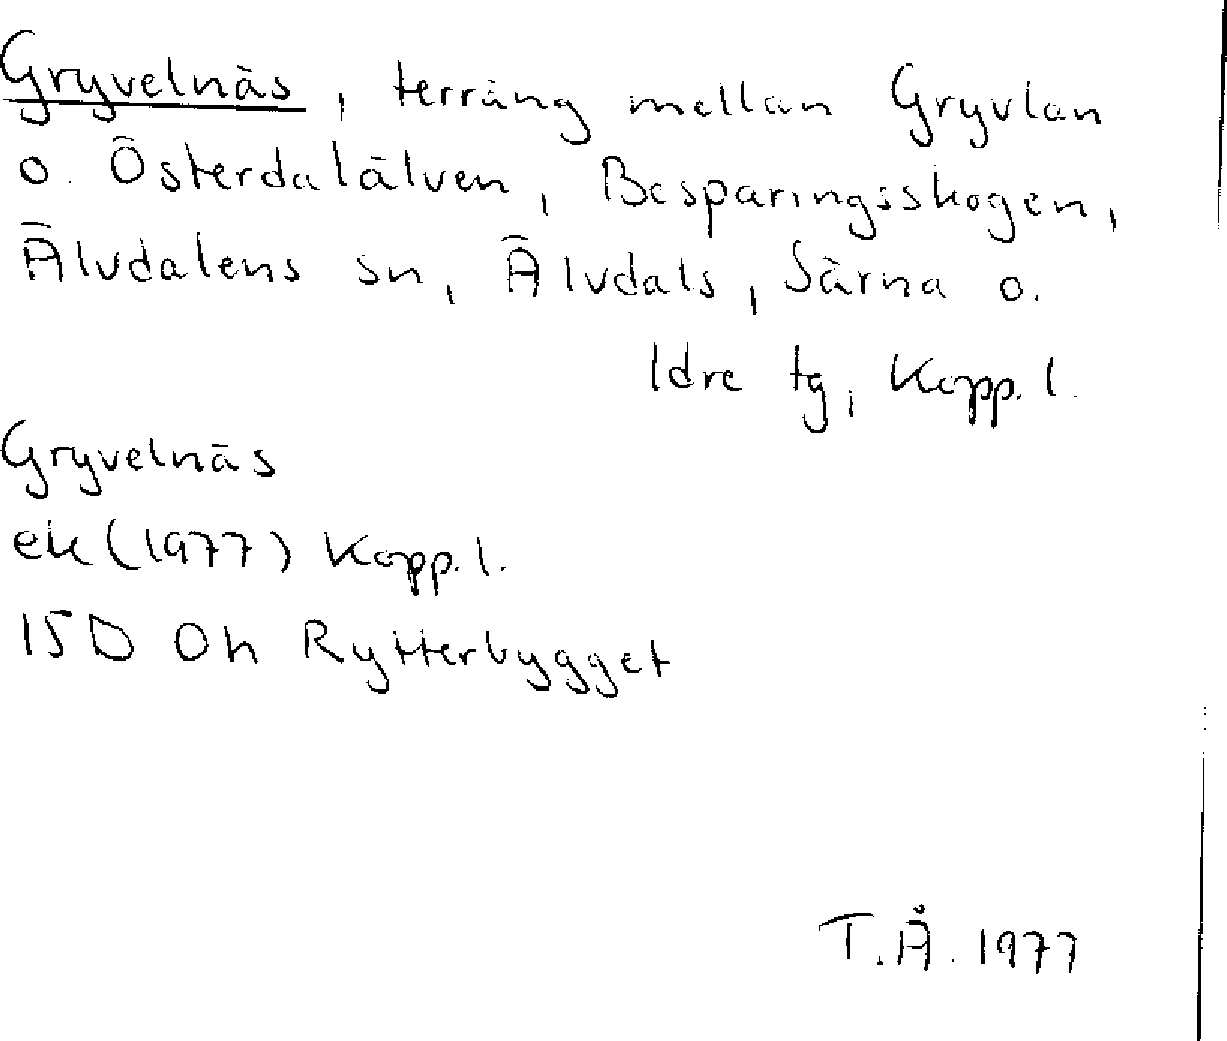 Gryvelnäs, terräng mellan Gryvlan
o. Österdalälven, Besparingsskogen,
Älvdalens sn, Älvdals, Särna o.
Idre tg, Kopp. l.
Gryvelnäs
ek (1977) Kopp. l.
15D 0h Rytterbygget
T.Å. 1977